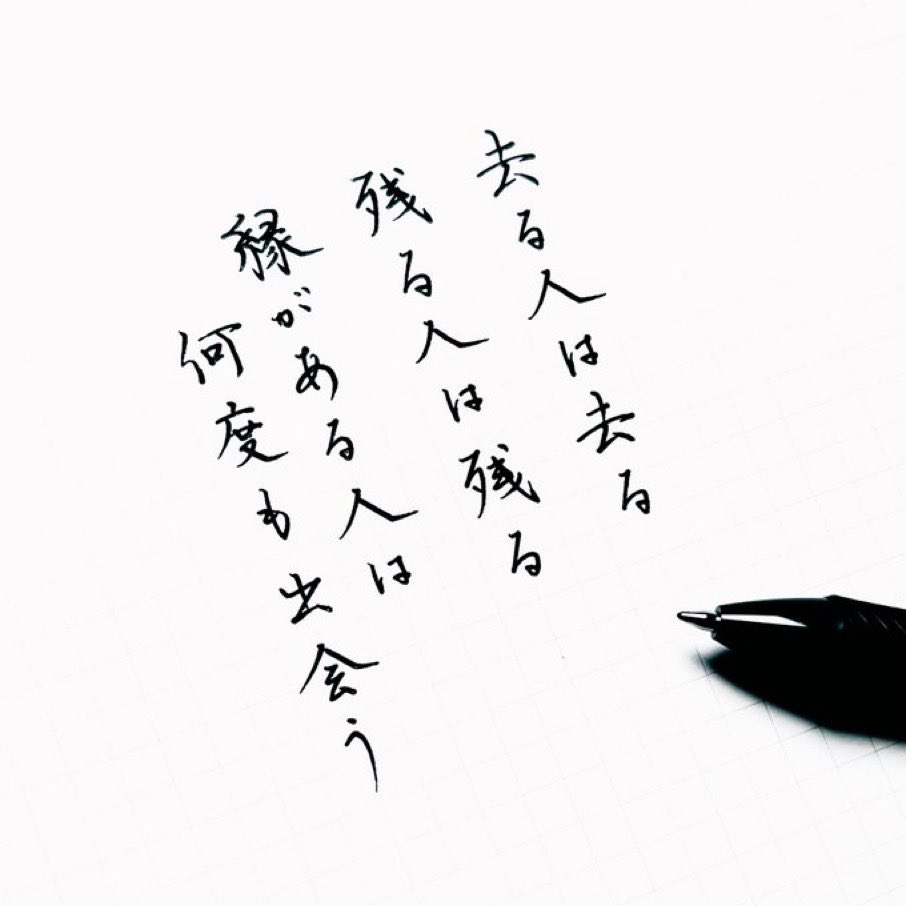 去る人は去る
残る人は残る
縁がある人は
何度も出会う